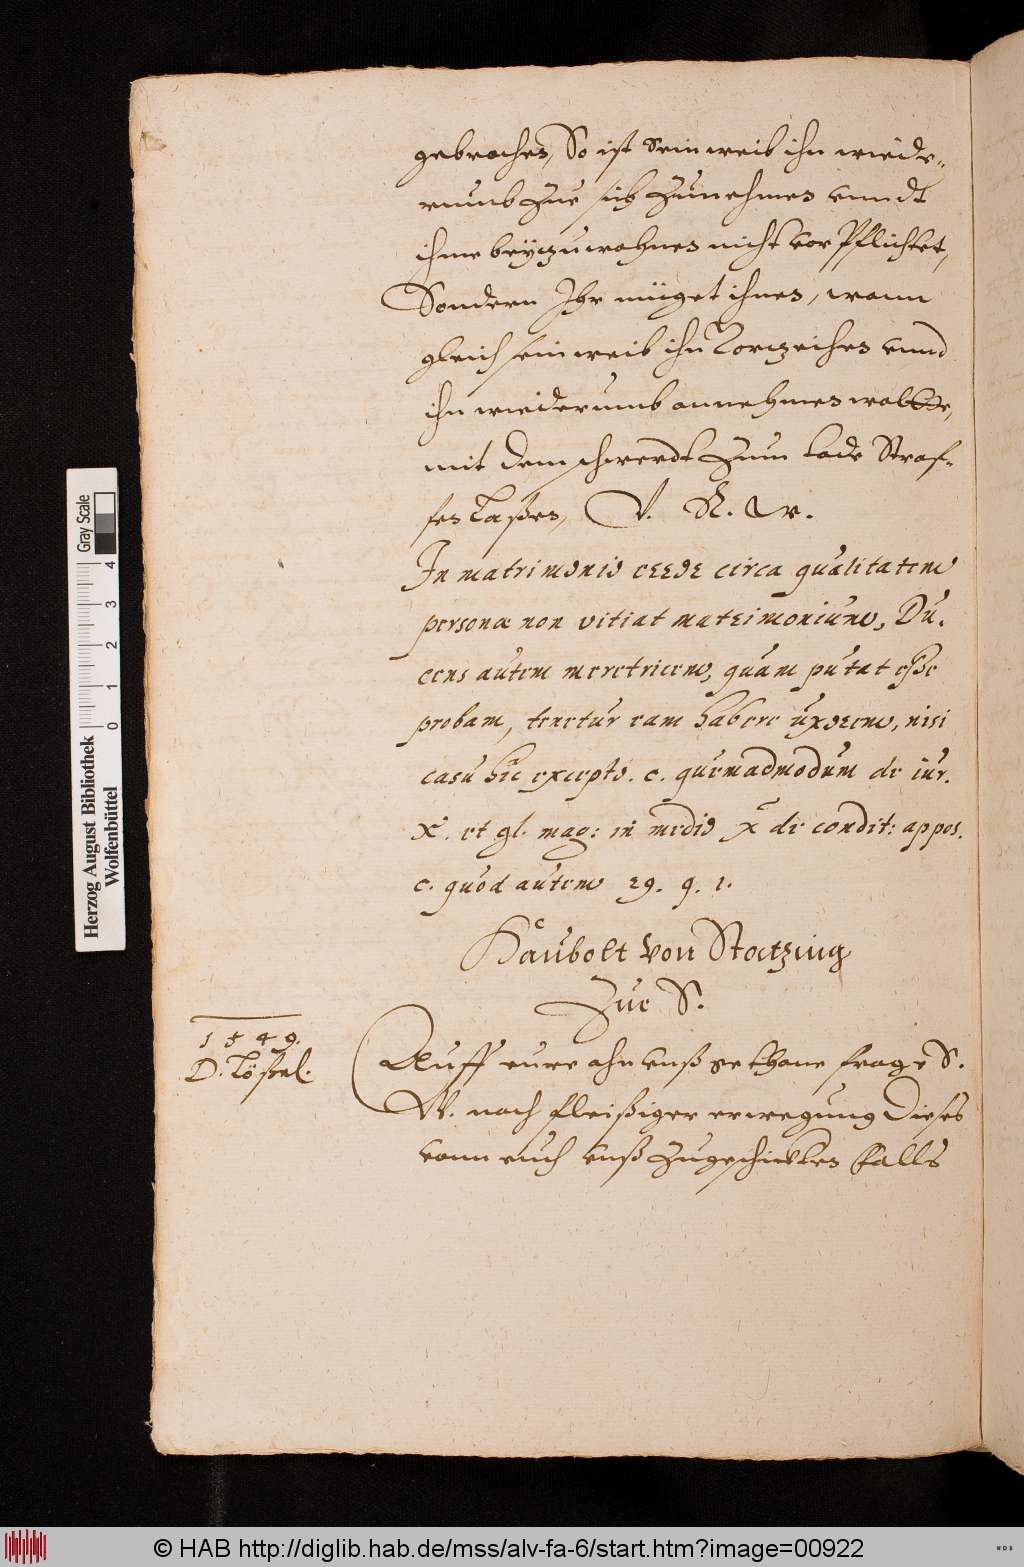 gebrochen, So ist sein weib ihn wiede¬
rumb zue sich zunehmen vnndt
ihme beÿzuwohnen nicht vorPflichtet,
Sondern Ihr müget ihnen, wann
gleich sein weib ihn vorzeihen vnnd
ihn wiederumb annehmen wolte,
mit dem schwerdt zum tode Straf¬
fen laßen, V. R. w.
In matrimonio error circa qualitatem
personæ non vitiat matrimonium, Du.
cens autem meretricem, quam putat esse
probam, tenetur eam habere uxorem, nisi
casu hic excepto. c. quemadmodum de iur.
X. et gl. mag: in medio X de condit: appos.
c. quod autem 29. q. 1.
Haubolt von Statzing
Zue S.
1549.
D. Löſsel.
Auff eure ahn vnß gethane frage S.
W. nach fleißiger erwegung Dieses
vonn euch vnß zugeschickten Falls
Gray Scale
0 1 2 3 4
Herzog August Bibliothek
Wolfenbüttel
© HAB http://diglib.hab.de/mss/alv-fa-6/start.htm?image=00922